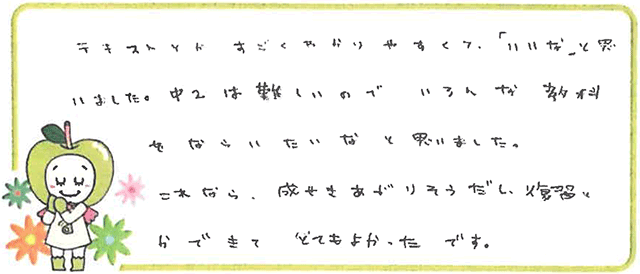 テキストとかすごくわかりやすくて、「いいな」と思
いました。中2は難しいのでいろんな教科
をならいたいなと思いました。
これなら、成せきあがりそうだし、復習と
かできてとてもよかったです。